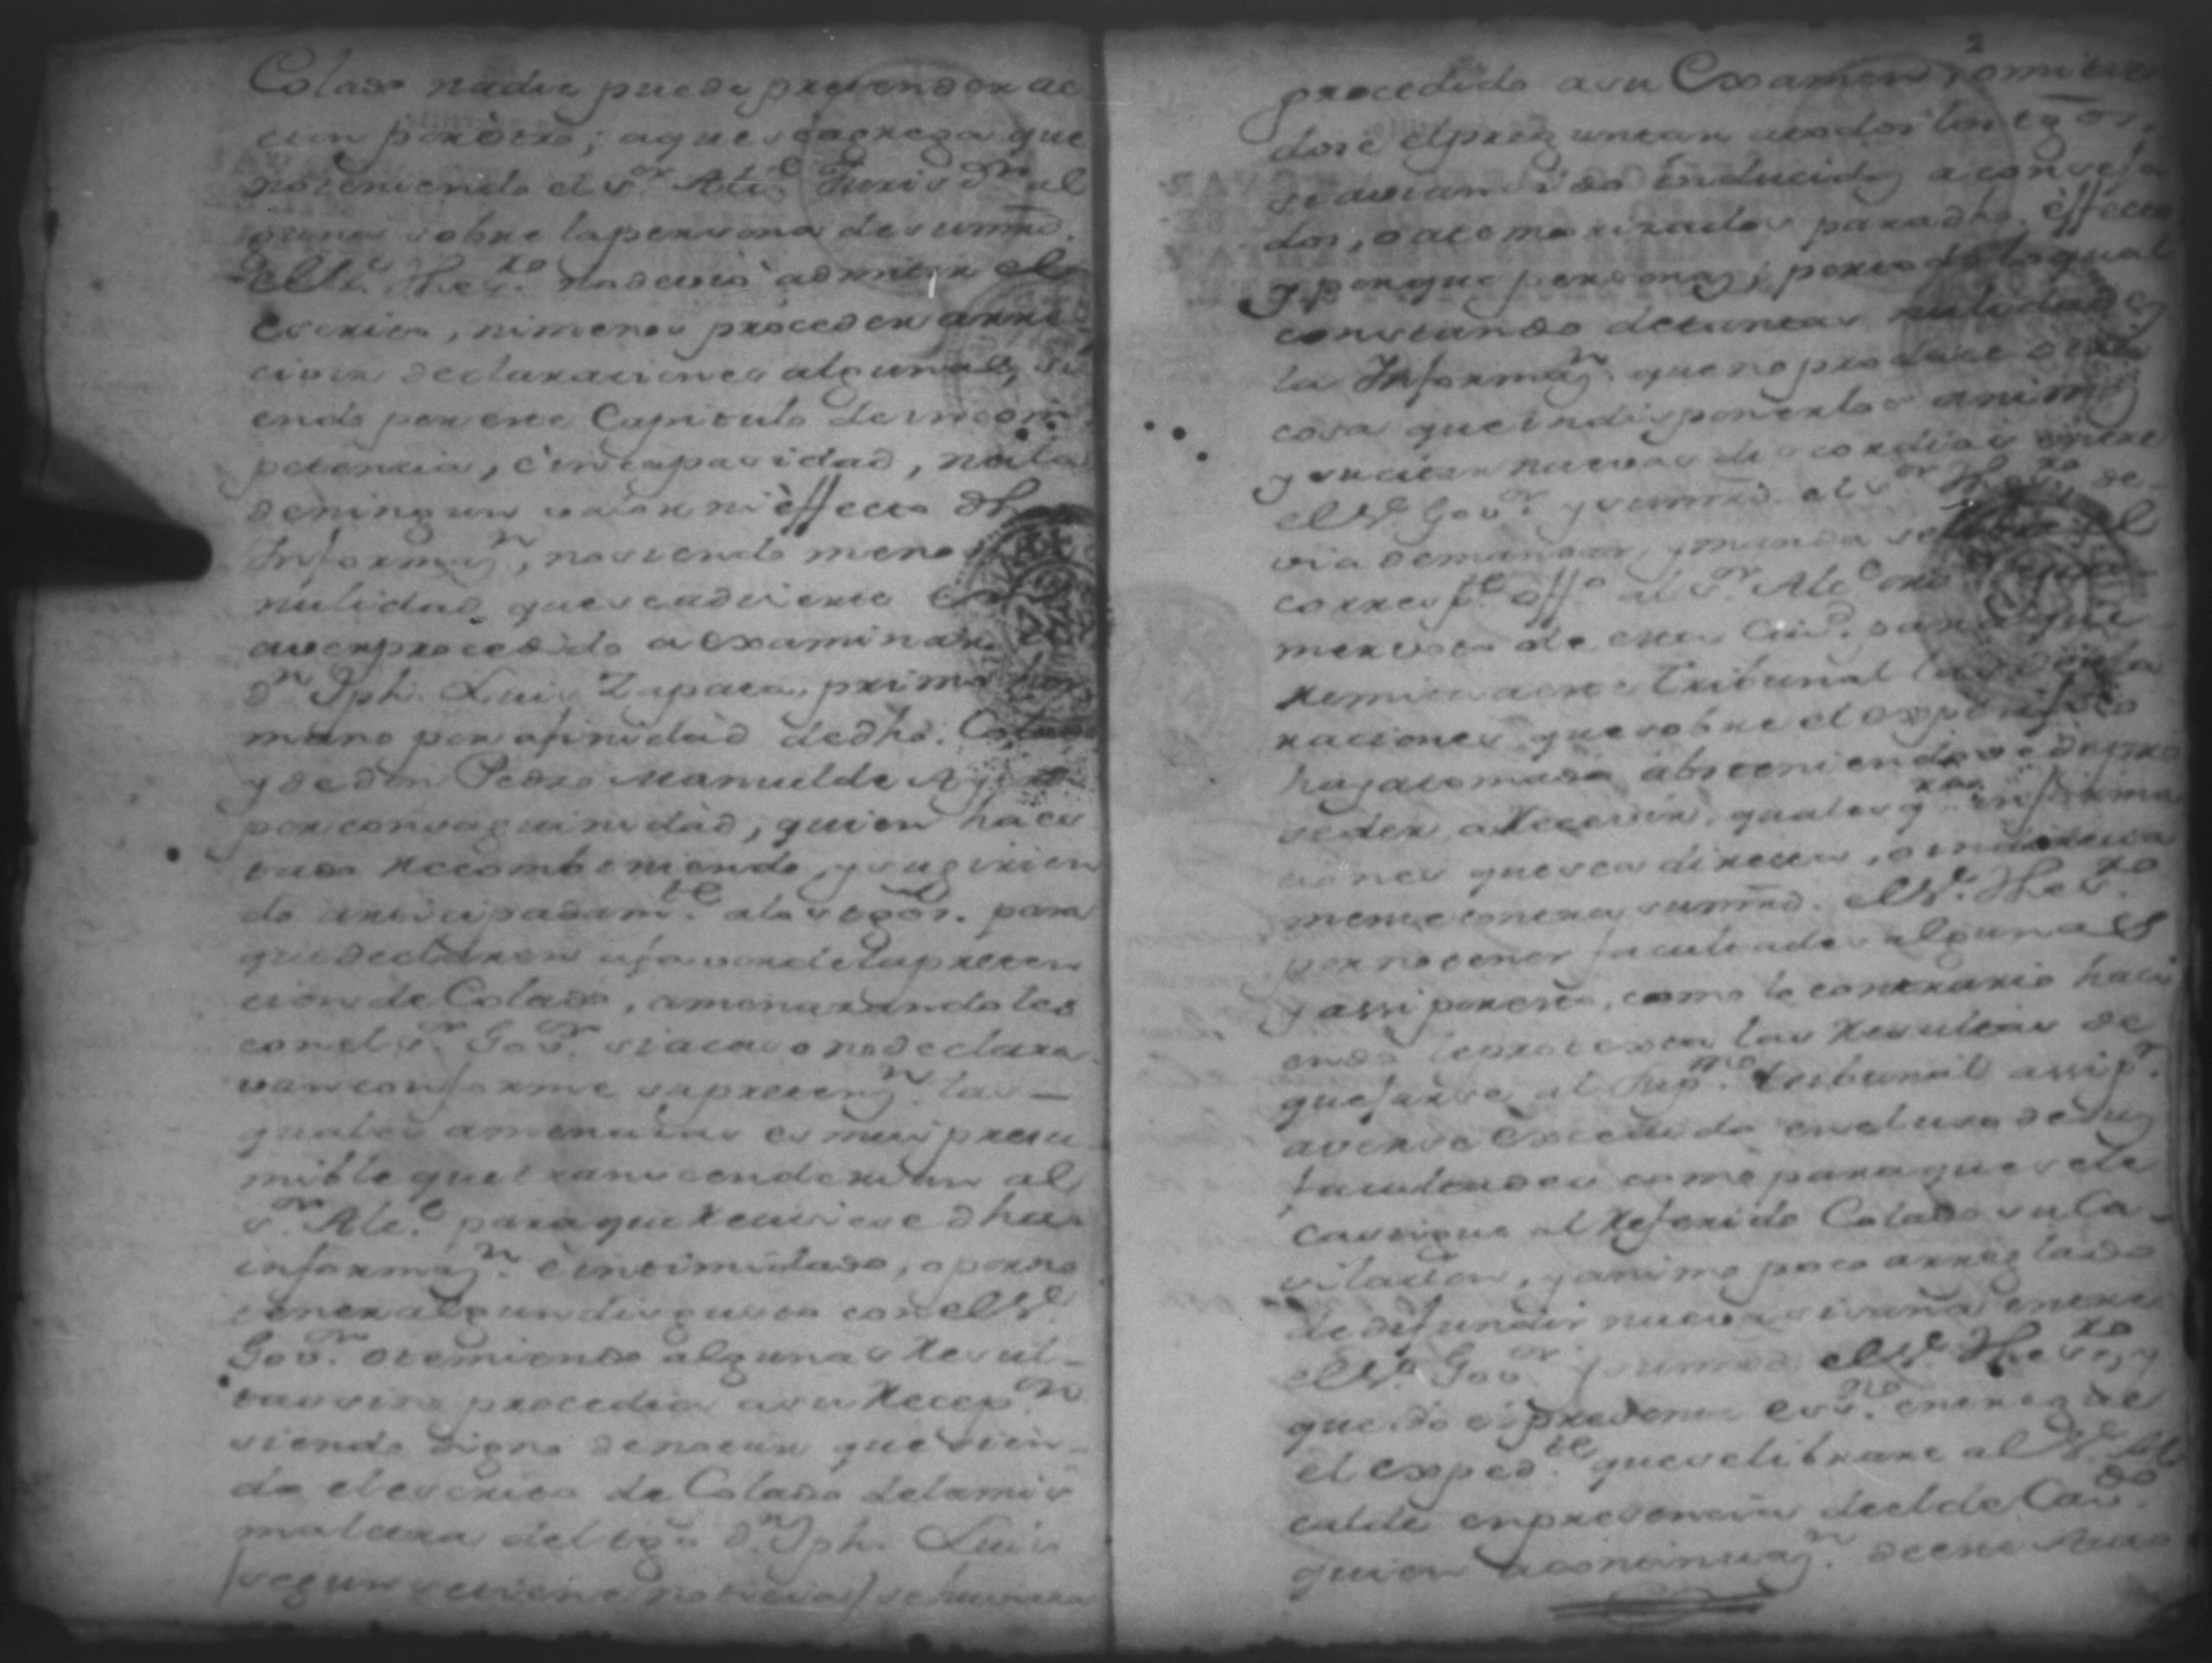 Colado nadie puede pretender ac
cion por òtro; aque se agrega que
no teniendo el s.or Alc.e Jurisd.on al
guna sobre la persona de su mrd.
el S.r Thes.ro no devió admitir el
escrito, ni menos proceder
declaraciones algunas, si
endo por este Capitulo de incom
petencia, è incapasidad, nula
de ningun valor ni èffecto dha
Informaz.n, no siendo menos
nulidad que se advierte
aver procedido a examinar
d.n Jph. Luis Zapata, primo her
mano por afinidad de dho. Colado
y de don Pedro Manuel de
por consaguinidàd, quien ha es
tado Recomboniendo, y sugirien
do anticipadam.te a los tgos. para
que declaren a favor de la preten
cion de Colado, amenazandoles
con el s.or Gov.or si acaso no declara
van conforme su pretenz.n las
quales amenazas es mui presu
mible que transcenderian al
s.or Alc.e para que Reciviese dha
informaz.n è intimidado, o por no
tener algun disgusto con el S.r
Gov.or o temiendo algunas Resul-
tas procedio a su Recep.on
siendo digno de notar que sien-
do el escrito de Colado de la mis
ma letra del tgo d.n Jph. Luis
(segun se tiene noticia) se huviera
2
procedido a su Examen, y omitien
dose el preguntar a todos los tgos.
si avian sido inducidos, aconseja
dos, o atemorizados para dho. èffecto
y porque personas; por todo lo qual
constando de tantas nulidades
la Informaz.n que no produce otra
cosa que indisponer los animos
y suscitar nuevas discordias entre
el S.r Gov.or y su mrd. el s.or Thes.ro de-
via de mandar, y manda se el
corresp.te off.o al s.or Alc.e
mer voto de esta Ciud. para que
Remita a este Tribunal las decla
raciones que sobre el expresado
haya tomado absteniendose de pro
seder a Recevir, qualesq.ra informa
ciones que sea directa, o indirecta
mente contra su mrd. el S.r Thes.ro
por no tener facultades algunas
y assi por esto, como lo contrario haci
endo le protexta las Resultas de
quejarse al Sup.mo Tribunal assi p.r
averse Excedido en el uso de sus
facultades como para que se le
castigue al Referido Colado su Ca-
vilacion, y animo poco arreglado
de difundir nueva sisaña entre
el S.r Gov.or y su mrd. el S.r Thes.ro, y
que do el presente ess.no entregue
el exped.te que se librare al S.r Al
calde en presencia de el de Cav.do
quien a continuaz.n de este Auto